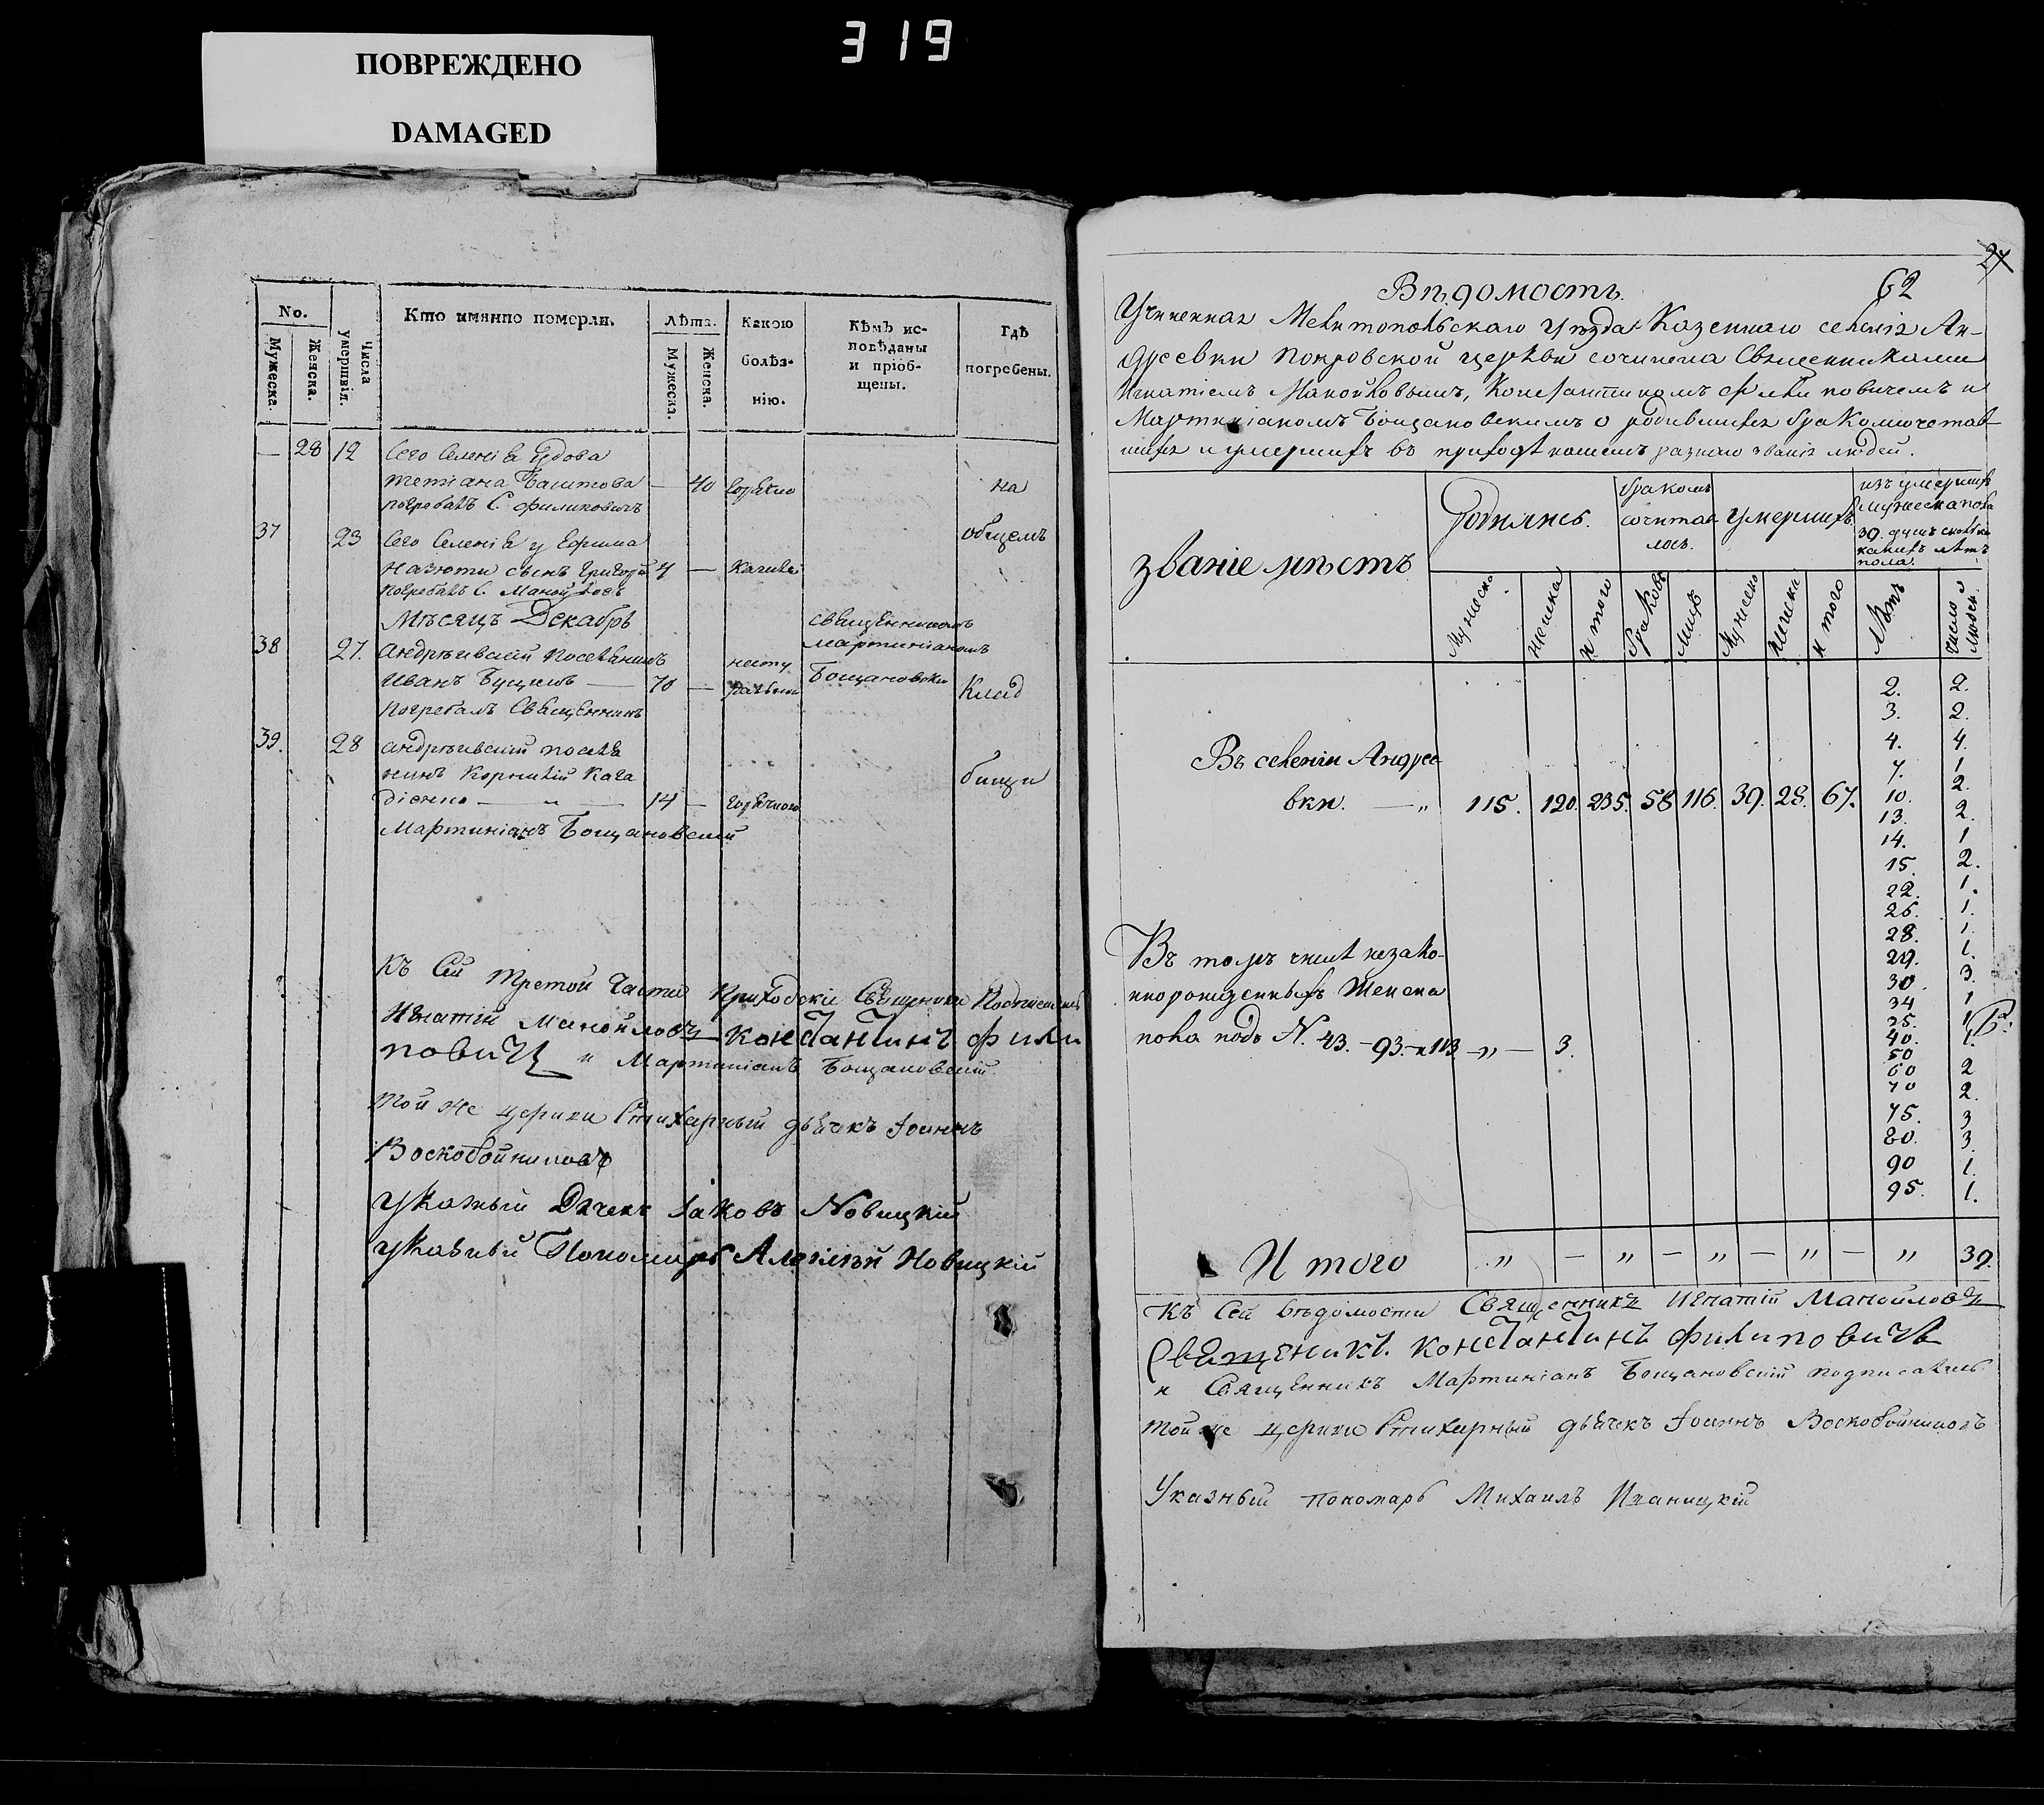 319
ПОВРЕЖДЕНО
DAMAGED
No. Числа умершвіл. Кто имянно померли. Лѣта. Какою болѣзнію. Кѣмъ исповѣданы и пріобщены. Гдѣ погребены.
Мужеска. Женска. Мужеска. Женска.
— 28 12 Сего Селенія Вдова
Тетіана Баштова — 40 на
погребалъ С. Филиповичъ
37 23 Сего Селенія у Ефима общемъ
сынъ Григорій 4 —
погребалъ С. Манойловъ
Мѣсяцъ Декабрь священникомъ
38 27. Андрѣевскій поселянинъ Мартиніаномъ
Иванъ — 70 — Бощановски клад
погребалъ Священникъ
39. 28 Андрѣевскій поселя
нинъ Корнилій Кага бищи
діенко — „ — 14 —
Мартиніанъ Бощановскій
Къ сей третой части приходскіе Священники подписались
Игнатій Манойловъ Константинъ Фили
повичъ и Мартиніанъ Бощановскій
Той же церкви стихарный дьячекъ Іоаннъ
Воскобойниковъ
Указный Дячекъ Іаковъ Новицкій
Указный Пономарь Алексѣй Новицкій
27
Вѣдомость. 62
Учиненная Мелитопольскаго уѣзда Казеннаго селенія Ан-
дреевки Покровской церкви сочинена Священниками
Игнатіемъ Манойловымъ, Константиномъ Филиповичемъ и
Мартиніаномъ Бощановскимъ о родившихся бракомъ
и умершихъ въ приходѣ нашемъ разнаго званія людей.
званіе мѣстъ Родились. бракомъ сочеталось. умершихъ. изъ умершихъ мужеска пола 39. душъ
Мужеска женска итого браковъ лицъ мужеска женска итого Лѣтъ число людей.
2. 2.
3. 2.
4. 4.
Въ селеніи Андрее- 7. 1
вки. — „ 115. 120. 235. 58 116. 39. 28. 67. 10. 2.
13. 2.
14. 1
15. 2.
22. 1.
26. 1.
28. 1.
Въ томъ числѣ незако- 29. 1.
30 3.
ннорожденныхъ женска 34 1
35. 1
пола подъ N. 43. — 93. — и 113 — „ — 3. 40. 1.
50
60 2
70 2.
75. 3
80. 3.
90 1.
95. 1.
Итого „ — „ — „ — „ — „ 39.
Къ сей вѣдомости Священникъ Игнатій Манойловъ
Священикъ. Константинъ Филиповичъ
и Священникъ Мартиніанъ Бощановскій подписались
Той же церкви стихарный дьячекъ Іоаннъ Воскобойниковъ
Указный пономарь Михаилъ Иваницкій